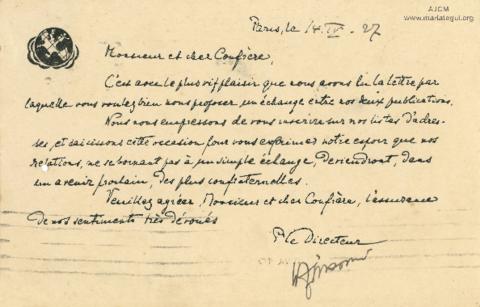 AJCM
www.mariategui.org
Paris, le 14 IV. 27
Monsieur et cher Confrère,
C'est avec le plus vif plaisir que nous avons lu la lettre par
laquelle vous voulez bien nous proposer un échange entre nos deux publications.
Nous nous empressons de vous inscrire sur nos listes d'adres-
ses, et saisissons cette occasion pour vous exprimer notre espoir que nos
relations, ne se bornant pas à un simple échange, deviendront, dans
un avenir prochain, des plus confraternelles.
Veuillez agréer, Monsieur et cher Confrère, l'assurance
de nos sentiments très dévoués
P. le Directeur